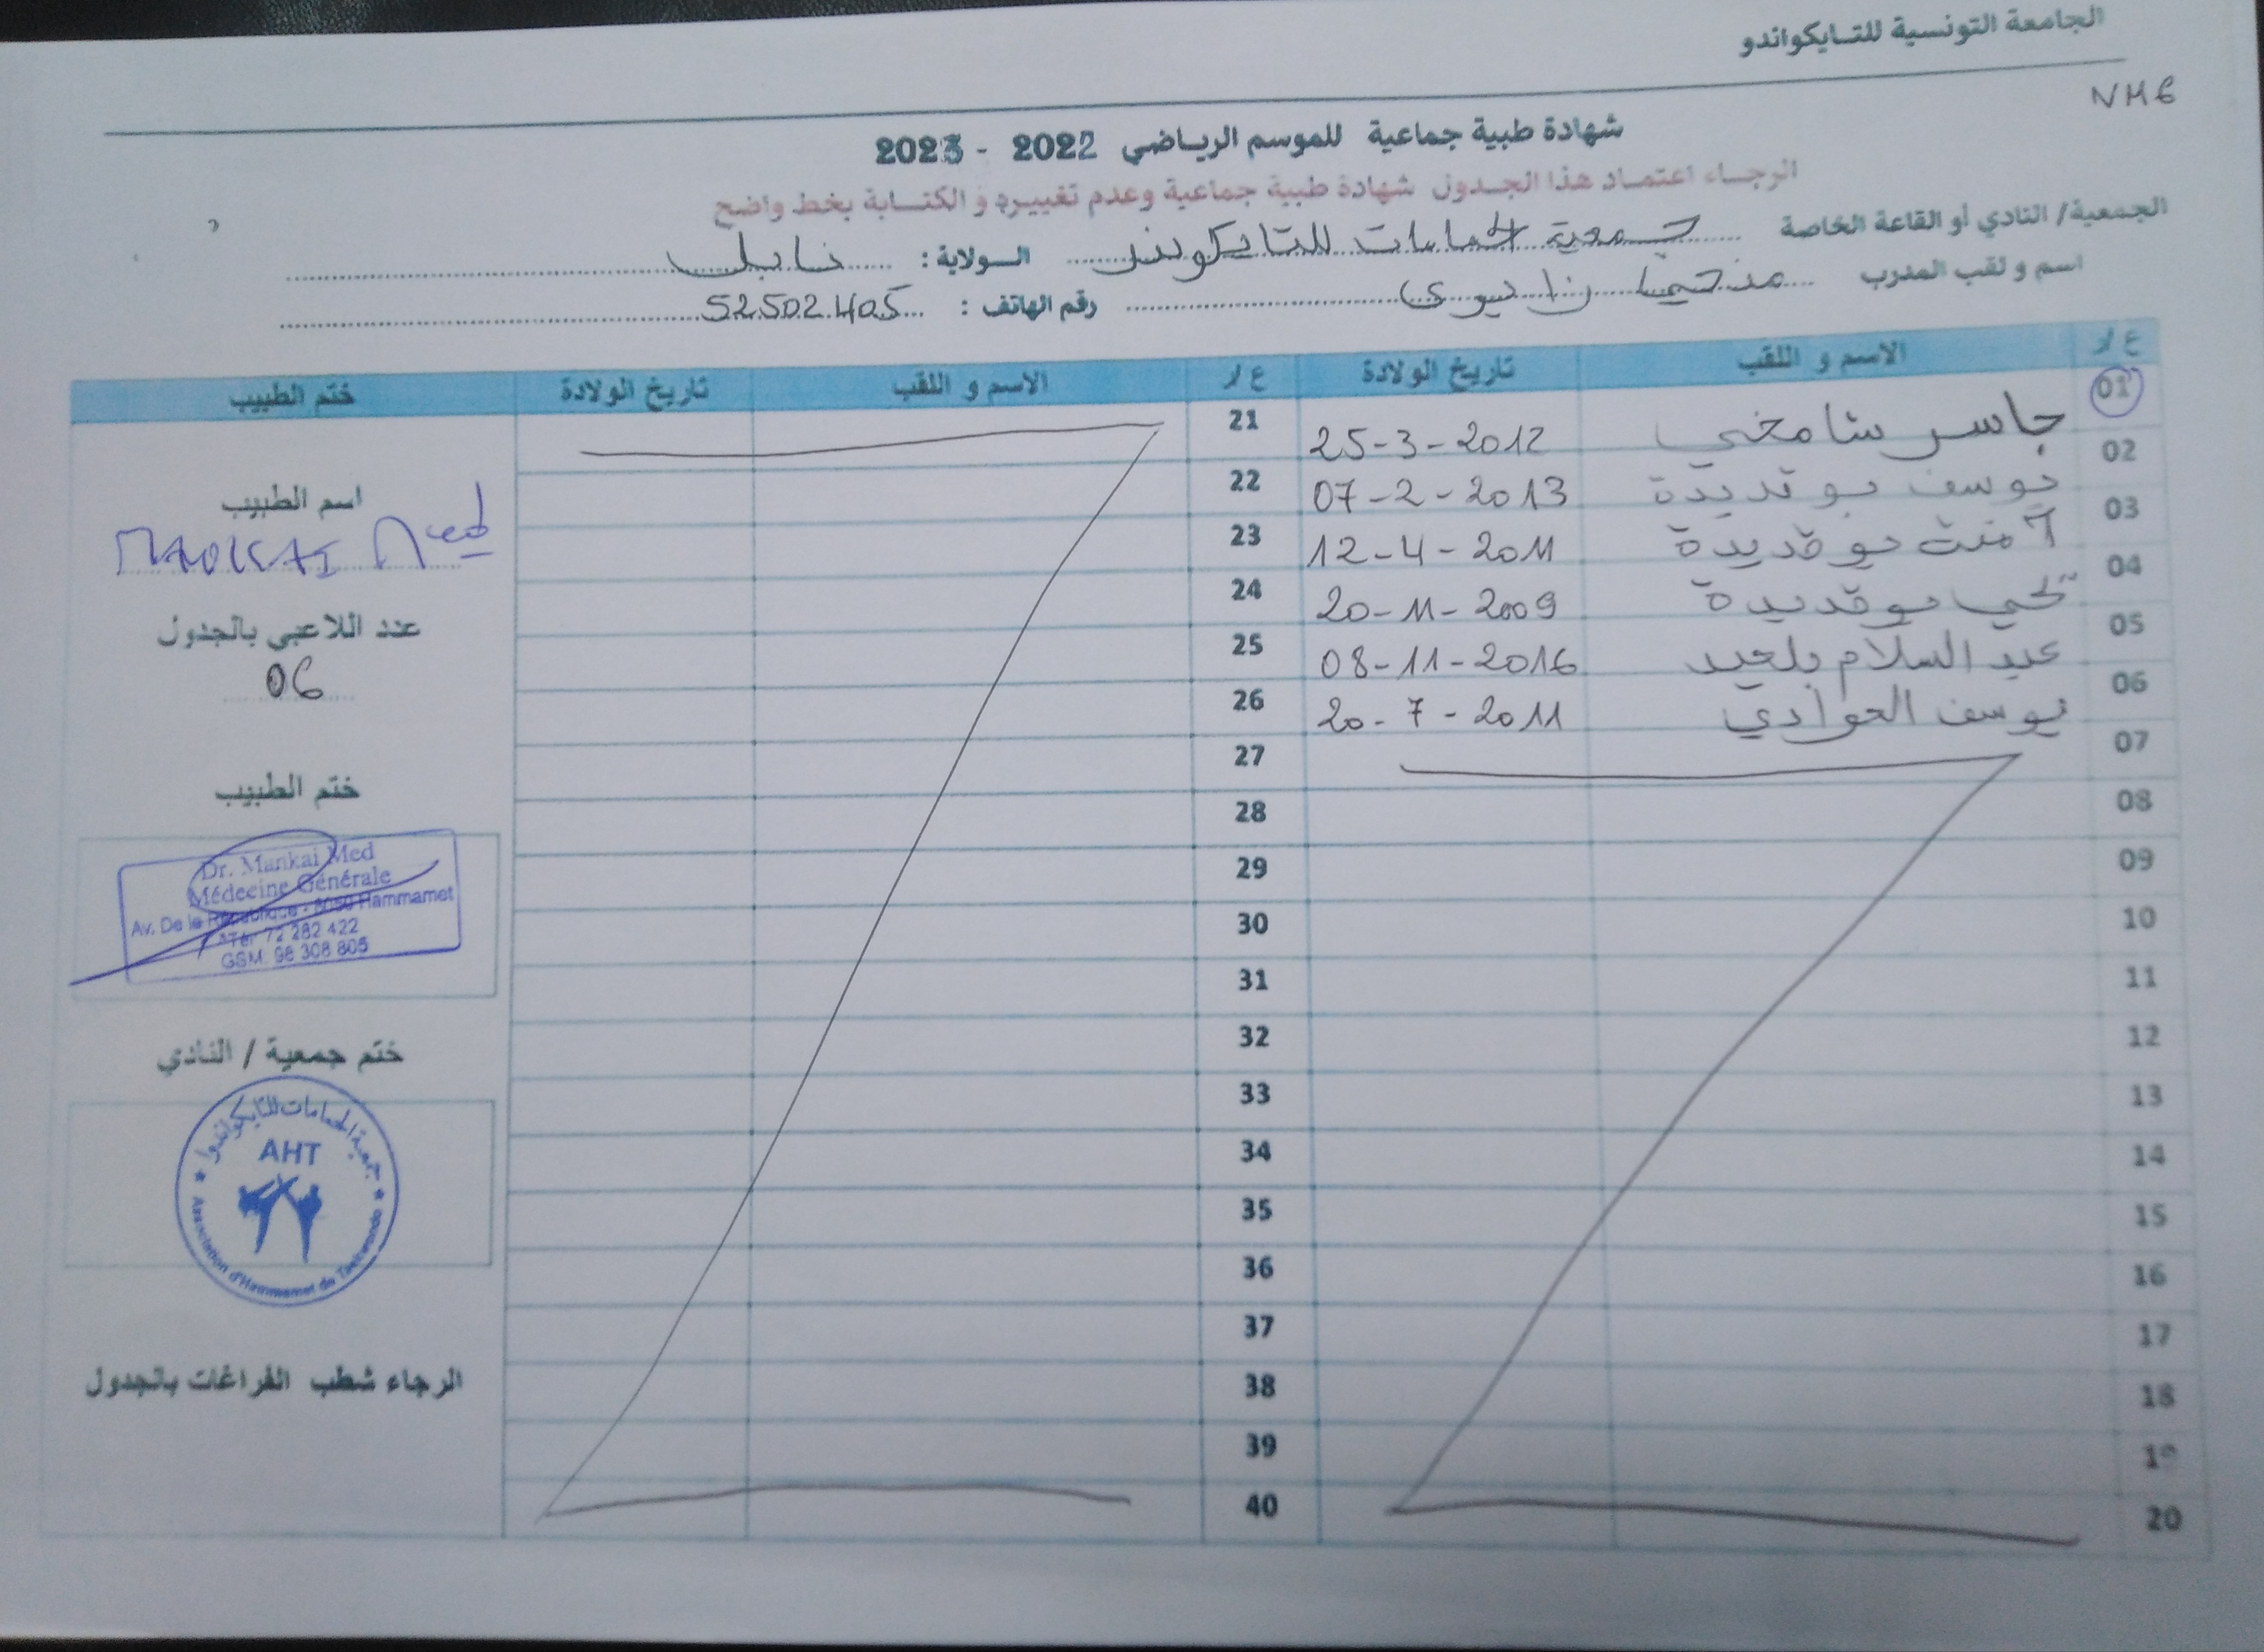 الجامعة التونسية للتايكواندو
NM6
شهادة طبية جماعية للموسم الرياضي 2022 - 2023
الرجاء اعتماد هذا الجدول شهادة طبية جماعية وعدم تغييره و الكتابة بخط واضح
الجمعية/ النادي أو القاعة الخاصة جمعية الحمامات للتايكوندو الولاية : نابل
اسم و لقب المدرب رقم الهاتف : 52502405
ع/ر الاسم و اللقب تاريخ الولادة ع/ر الاسم و اللقب تاريخ الولادة ختم الطبيب
01 جاسر شامخي 25-3-2012 21
02 يوسف بوقديدة 07-2-2013 22
03 آمنة بوقديدة 12-4-2011 23
04 بوقديدة 20-11-2009 24
05 عبد السلام بلعيد 08-11-2016 25
06 يوسف العوادي 20-7-2011 26
07 27
08 28
09 29
10 30
11 31
12 32
13 33
14 34
15 35
16 36
17 37
18 38
19 39
20 40
اسم الطبيب
MANKAI Med
عدد اللاعبي بالجدول
06
ختم الطبيب
Dr. Mankai Med
Médecine Générale
Av. De la République - 8050 Hammamet
Tél: 72 282 422
GSM. 98 308 805
ختم جمعية / النادي
جمعية الحمامات للتايكواندوا
AHT
Association d'Hammamet de Taekwondo
الرجاء شطب الفراغات بالجدول